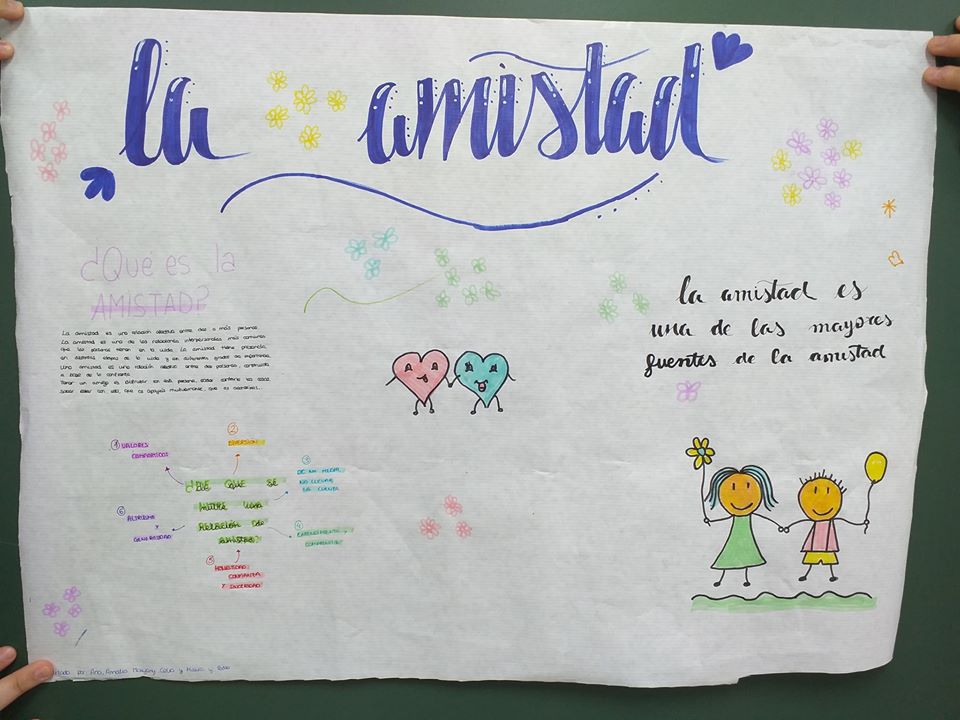 la amistad
¿Que es la
AMISTAD?
La amistad es una relación afectiva entre dos o más personas.
La amistad es una de las relaciones interpersonales más comunes
que las personas tienen en la vida. La amistad tiene presencia
en distintas etapas de la vida y en diferentes grados de importancia.
Una amistad es una relación afectiva entre dos personas, construida
a base de la confianza.
Tener un amigo es disfrutar con esa persona,
saber estar con ella, que os apoyáis mutuamente, que os
la amistad es
una de las mayores
fuentes de la amistad
① VALORES
COMPARTIDOS
② DIVERSION
③ DE NO MEDIR,
NO LLEVAR
LA CUENTA
¿DE QUE SE
NUTRE UNA
RELACIÓN DE
AMISTAD?
⑥ ALTRUISMO
Y
GENEROSIDAD
④ ENTENDIMIENTO Y
COMPRENSIÓN
⑤ HONESTIDAD,
CONFIANZA
Y SINCERIDAD
por Ana, Marjory, Celia y